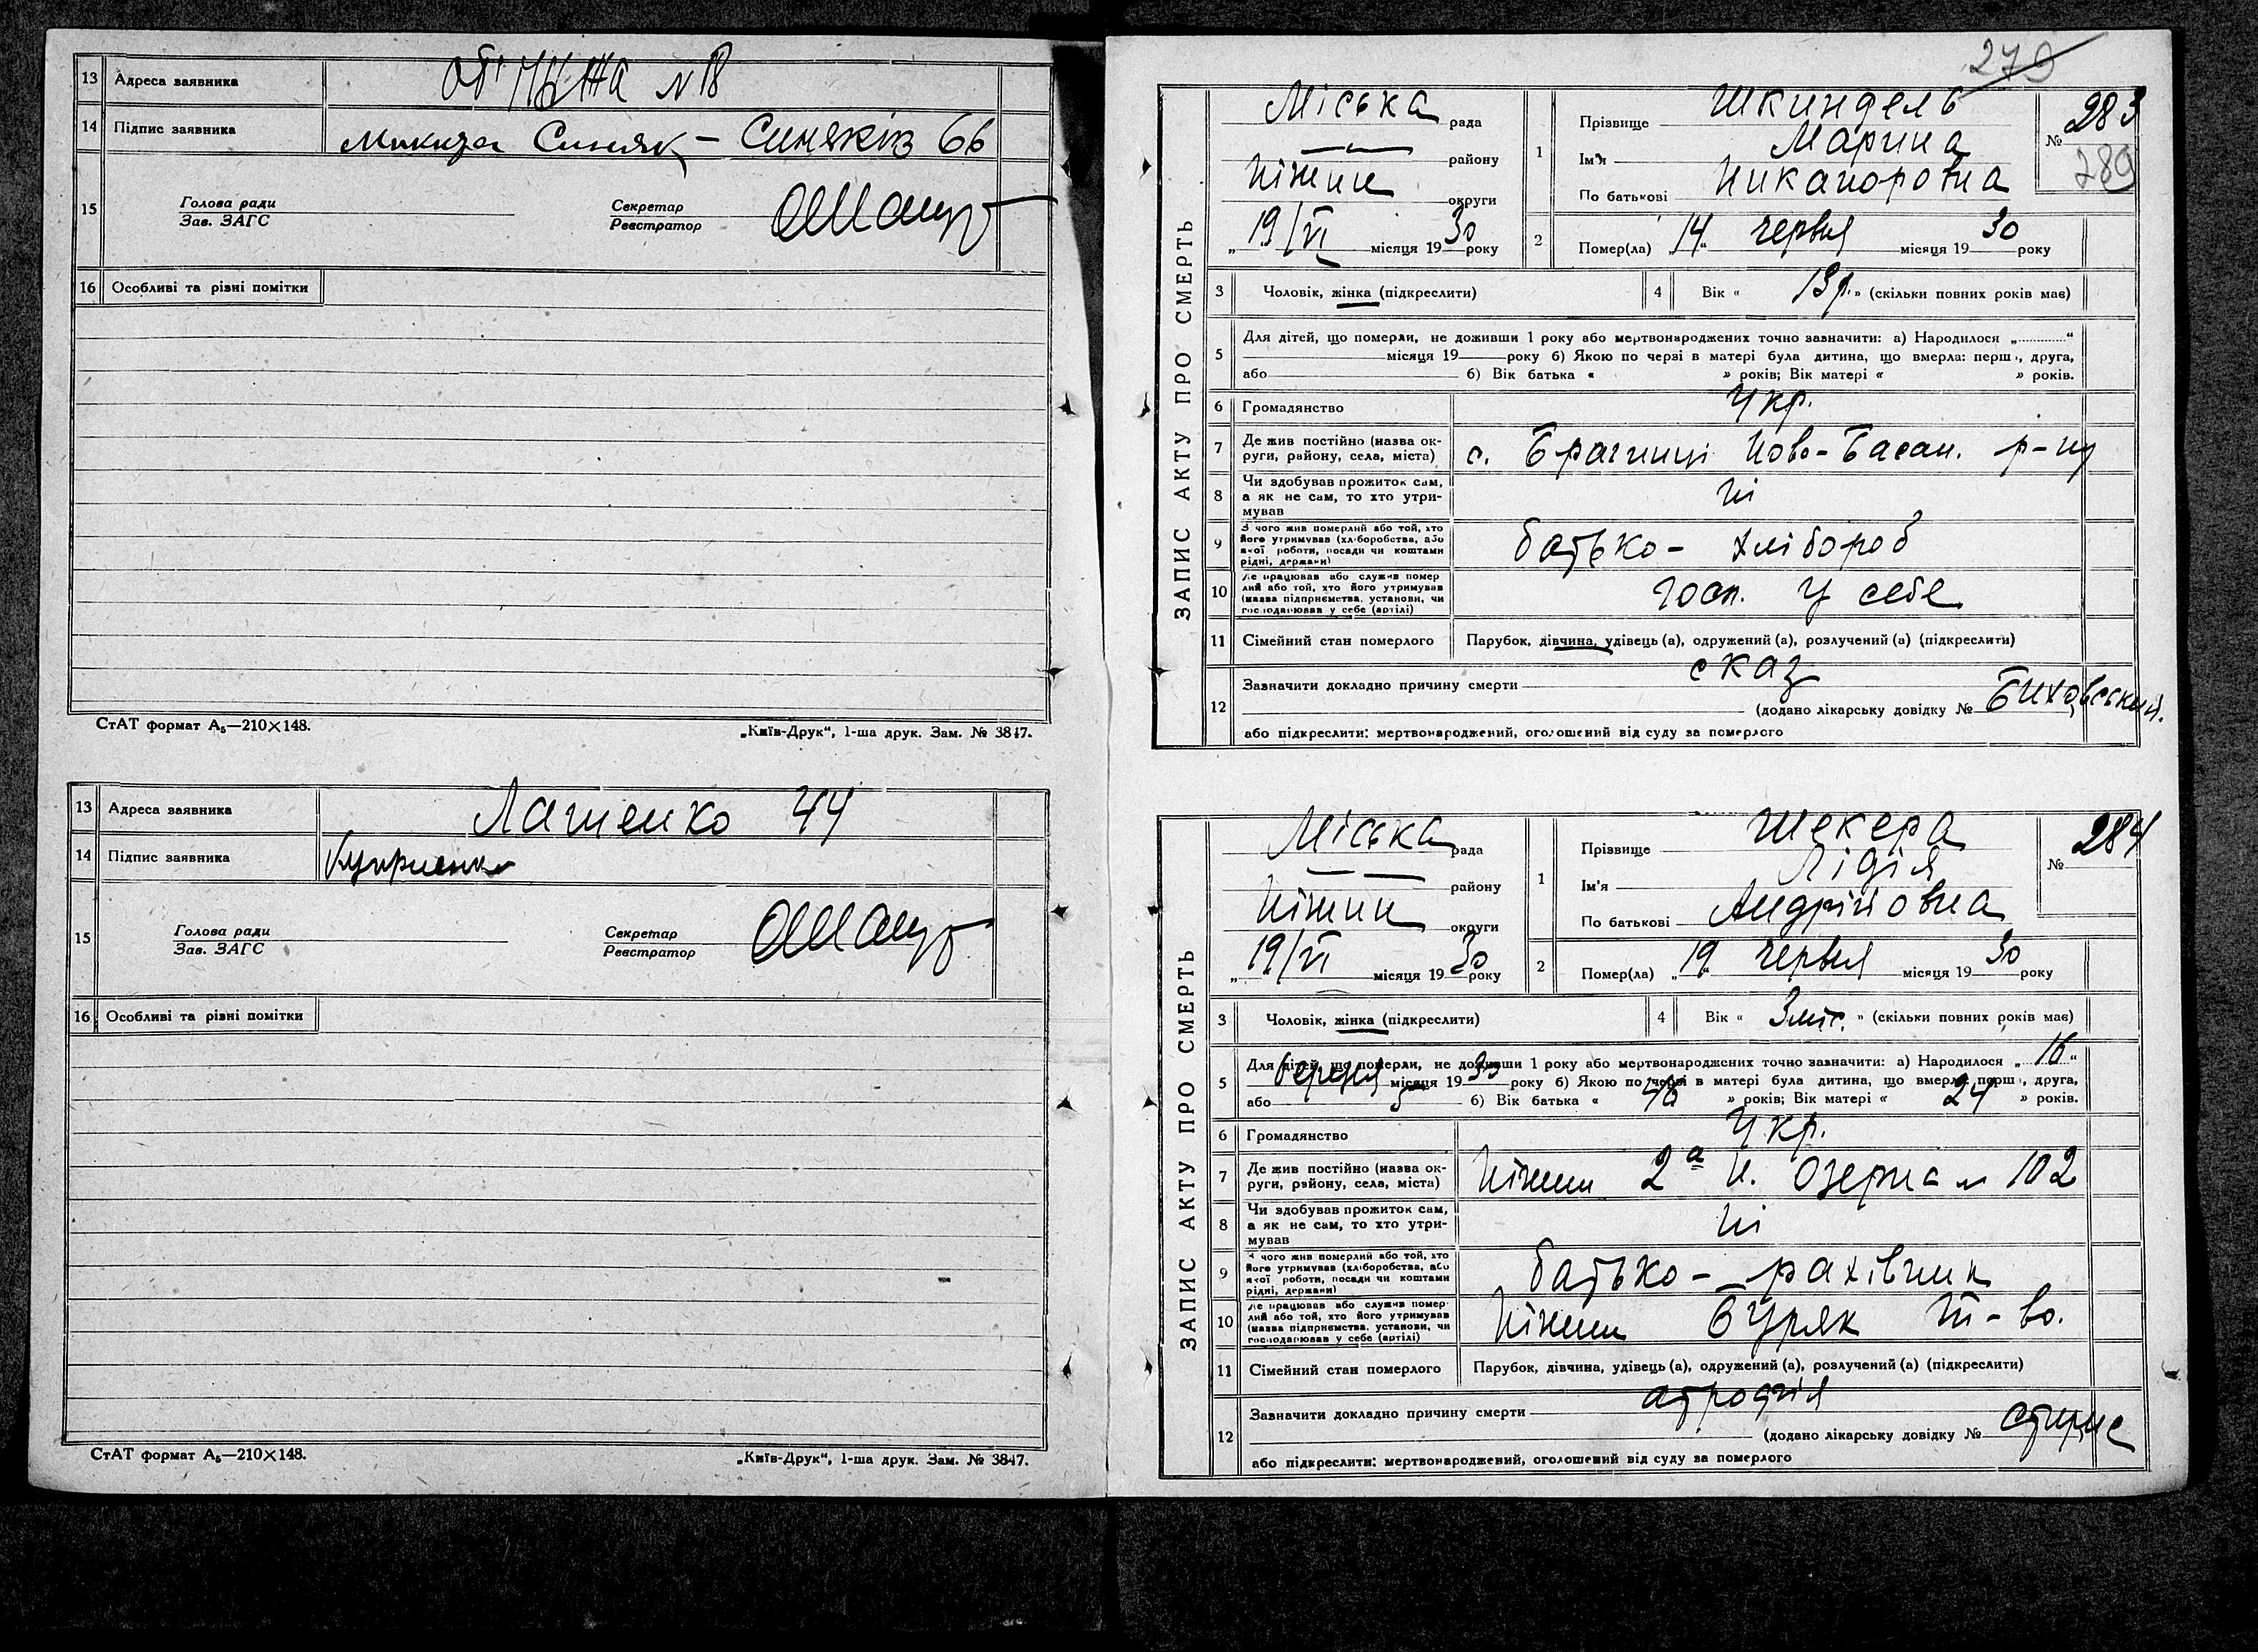 13 Адреса заявника № 18
14 Підпис заявника Микита Синяк – Синяків 66
15 Голова ради
Зав. ЗАГС
Секретар
Реєстратор
16 Особливі та різні помітки
СтАТ формат А₅—210×148.
„Київ-Друк“, 1-ша друк. Зам. № 3847.
13 Адреса заявника 44
14 Підпис заявника
15 Голова ради
Зав. ЗАГС
Секретар
Реєстратор
16 Особливі та різні помітки
СтАТ формат А₅—210×148.
„Київ-Друк“, 1-ша друк. Зам. № 3847.
279
ЗАПИС АКТУ ПРО СМЕРТЬ
Міська рада
— району
Ніжин округи
„ 19/VI місяця 1930 року
1 Прізвище Шкиндель
Ім'я Марина
По батькові Никапоровна
№ 283
289
2 Помер(ла) „14“ червня місяця 1930 року
3 Чоловік, жінка (підкреслити)
4 Вік « 13 р. » (скільки повних років має)
5 Для дітей, що померли, не доживши 1 року або мертвонароджених точно зазначити: а) Народилося „............“
місяця 19 року б) Якою по черзі в матері була дитина, що вмерла: перша, друга,
або б) Вік батька « » років; Вік матері « » років.
6 Громадянство Укр.
7 Де жив постійно (назва округи, району, села, міста) с. Ново-Басан. р-ну
8 Чи здобував прожиток сам, а як не сам, то хто утримував ні
9 З чого жив померлий або той, хто його утримував (хліборобства, або якої роботи, посади чи коштами рідні, держави) батько – хлібороб
10 Де працював або служив померлий або той, хто його утримував (назва підприємства, установи, чи господарював у себе (артілі) госп. у себе
11 Сімейний стан померлого Парубок, дівчина, удівець (а), одружений (а), розлучений (а) (підкреслити)
12 Зазначити докладно причину смерти сказ
(додано лікарську довідку № Биховський.
або підкреслити: мертвонароджений, оголошений від суду за померлого
ЗАПИС АКТУ ПРО СМЕРТЬ
Міська рада
— — району
Ніжин округи
„ 19/VI місяця 1930 року
1 Прізвище Шекера
Ім'я Лідія
По батькові Андрійовна
№ 284
2 Помер(ла) „19“ червня місяця 1930 року
3 Чоловік, жінка (підкреслити)
4 Вік « 3 міс. » (скільки повних років має)
5 Для дітей, що померли, не доживши 1 року або мертвонароджених точно зазначити: а) Народилося „16“
березня місяця 1930 року б) Якою по черзі в матері була дитина, що вмерла: перша, друга,
або 5 б) Вік батька « 46 » років; Вік матері « 24 » років.
6 Громадянство Укр.
7 Де жив постійно (назва округи, району, села, міста) Ніжин 2ᵃ Н. Озерна № 102
8 Чи здобував прожиток сам, а як не сам, то хто утримував ні
9 З чого жив померлий або той, хто його утримував (хліборобства, або якої роботи, посади чи коштами рідні, держави) батько – рахівник
10 Де працював або служив померлий або той, хто його утримував (назва підприємства, установи, чи господарював у себе (артілі) Ніжин Буряк т-во.
11 Сімейний стан померлого Парубок, дівчина, удівець (а), одружений (а), розлучений (а) (підкреслити)
12 Зазначити докладно причину смерти атрофія
(додано лікарську довідку №
або підкреслити: мертвонароджений, оголошений від суду за померлого